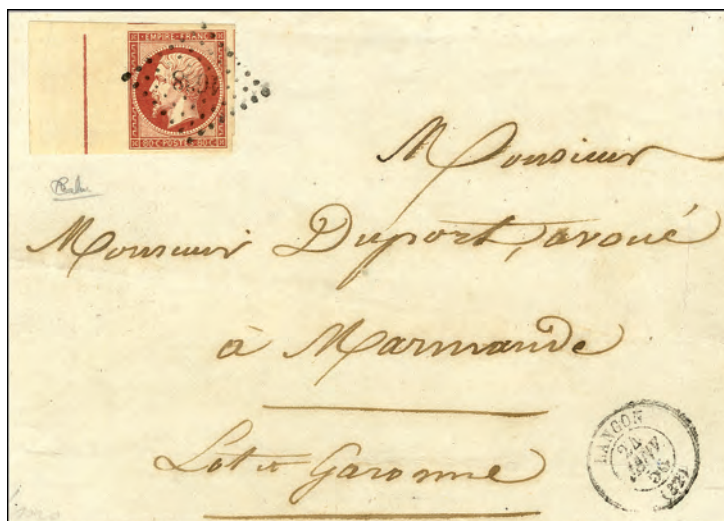 EMPIRE FRANC
80 C POSTES 80 C
Monsieur
Monsieur Duport, avoué
à Marmande
Lot et Garonne
LANGON
24
(32)